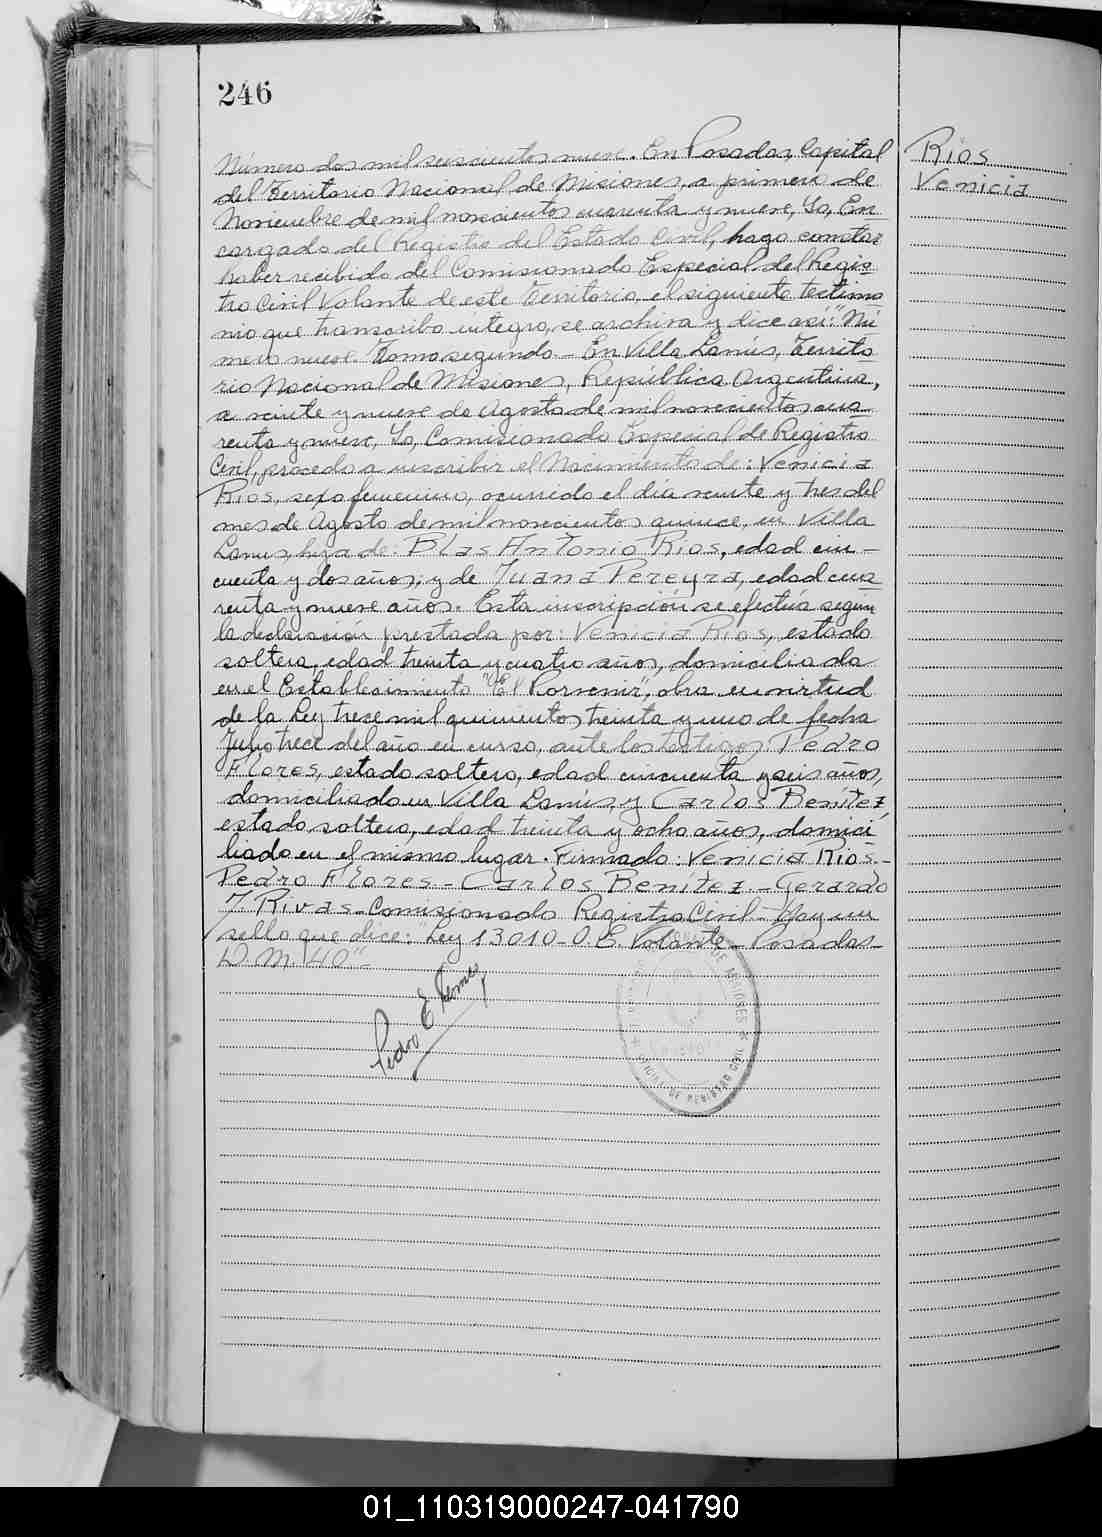 246
Número dos mil seiscientos nueve. En Posadas, Capital
del Territorio Nacional de Misiones, a primero de
Noviembre de mil novecientos cuarenta y nueve, Yo, En-
cargado del Registro del Estado Civil, hago constar
haber recibido del Comisionado Especial del Regis-
tro Civil Volante de este Territorio, el siguiente testimo
nio que transcribo íntegro, se archiva y dice así: "Nú
mero nueve Tomo segundo.- En Villa Lanús, Territo
rio Nacional de Misiones, República Argentina,
a veinte y nueve de Agosto de mil novecientos cua-
renta y nueve, Yo, Comisionado Especial de Registro
Civil, procedo a inscribir el Nacimiento de: Venicia
Rios, sexo femenino, ocurrido el día veinte y tres del
mes de Agosto de mil novecientos quince, en Villa
Lanus, hija de: Blas Antonio Rios, edad cin-
cuenta y dos años; y de Juana Pereyra, edad cua
renta y nueve años. Esta inscripción se efectúa según
la declaración prestada por: Venicia Rios, estado
soltera, edad treinta y cuatro años, domiciliada
en el Establecimiento "El Porvenir", obra en virtud
de la Ley trece mil quinientos treinta y uno de fecha
Julio trece del año en curso, ante los testigos: Pedro
Flores, estado soltero, edad cincuenta y seis años,
domiciliado en Villa Lanús, y Carlos Benítez,
estado soltero, edad treinta y ocho años, domici
liado en el mismo lugar. Firmado: Venicia Rios.-
Pedro Flores.- Carlos Benítez.- Gerardo
J Rivas- Comisionado Registro Civil- Hay un
sello que dice: "Ley 13010-O.E. Volante- Posadas-
D.M. 40"-
Pedro E
Rios
Venicia
DE MISIONES
DE REGISTRO CIVIL
01_110319000247-041790